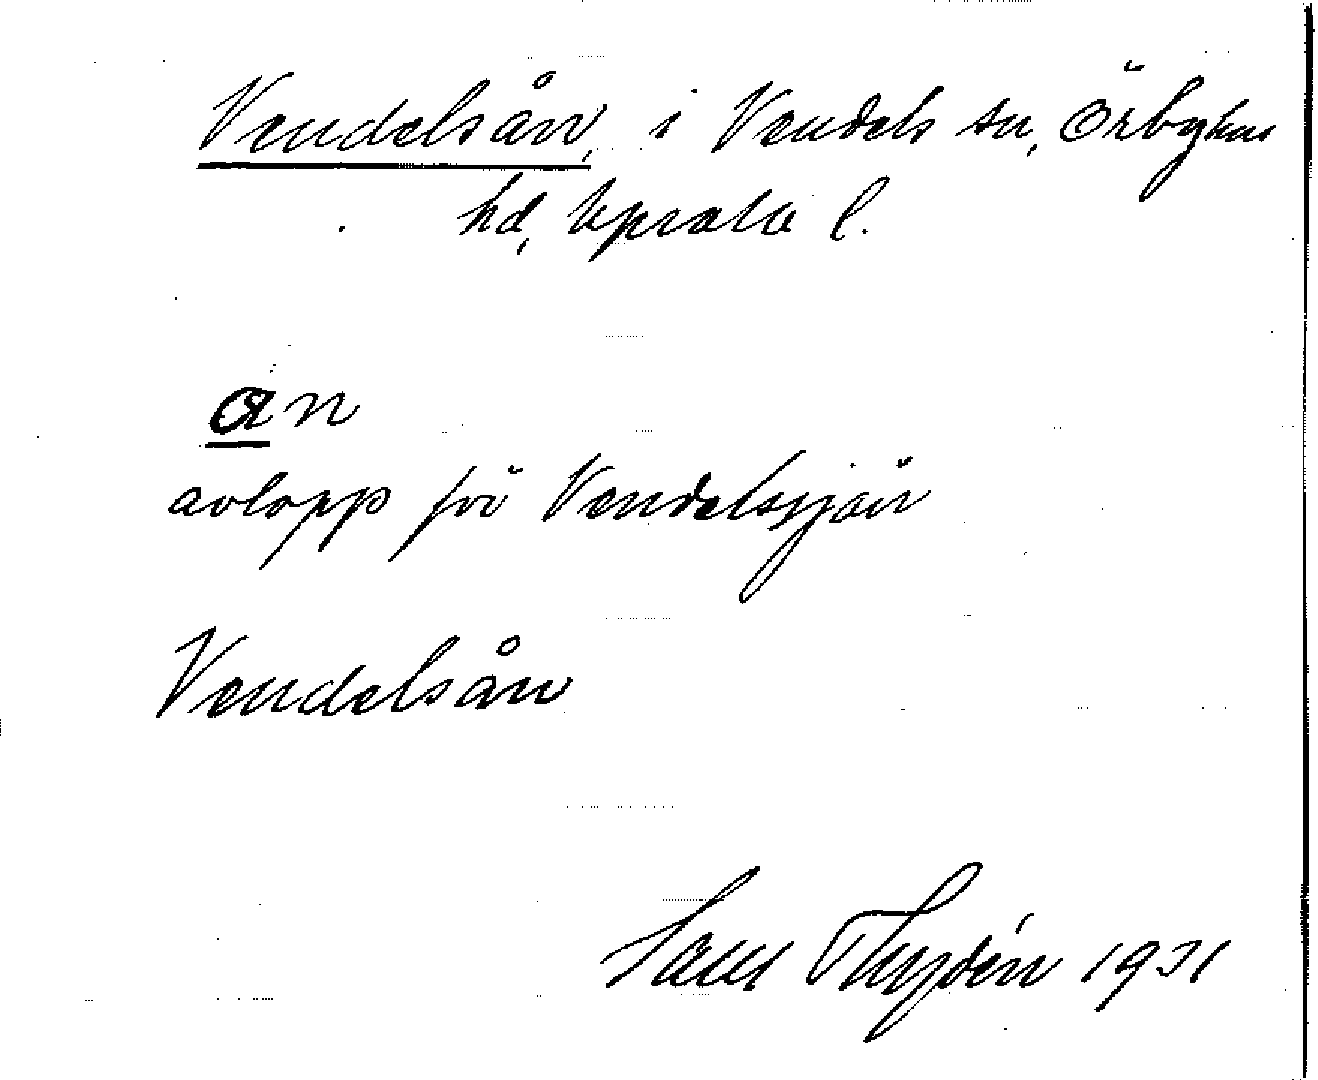 Vendelsån, i Vendels sn, Örbyhus
hd, Upsala l.
ån
avlopp för Vendelssjön
Vendelsån
Thydén 1931